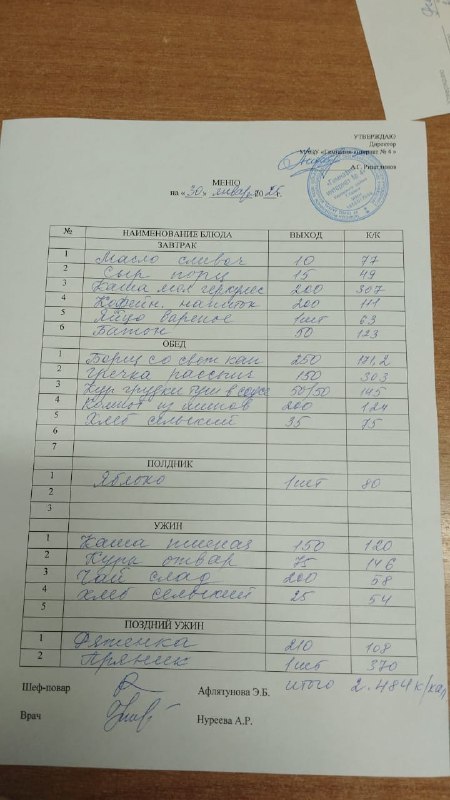 УТВЕРЖДАЮ
Директор
«Гимназия-интернат № 4»
А.С.
МЕНЮ
на «30» января 2026г.
№ НАИМЕНОВАНИЕ БЛЮДА ВЫХОД К/К
ЗАВТРАК
1 Масло сливоч 10 77
2 Сыр порц 15 49
3 Каша мол геркулес 200 307
4 Кофейн. напиток 200 111
5 Яйцо вареное 1шт 63
6 Батон 50 123
ОБЕД
1 Борщ со свеж кап 250 171,2
2 Гречка рассып 150 303
3 Кур грудки туш в соусе 50/50 145
4 Компот из 200 124
5 Хлеб сельский 35 75
6
7
ПОЛДНИК
1 Яблоко 1шт 80
2
3
УЖИН
1 Каша 150 120
2 Куры отвар 75 146
3 Чай слад 200 58
4 хлеб сельский 25 54
5
ПОЗДНИЙ УЖИН
1 Ряженка 210 108
2 Пряник 1шт 370
Шеф-повар Афлятунова Э.Б. итого 2.484к/кал
Врач Нуреева А.Р.